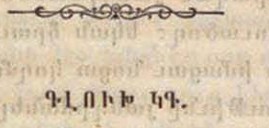 ԳԼՈՒԽ ԿԳ.